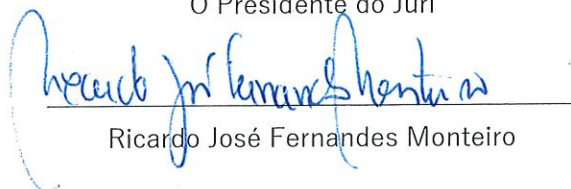 O Presidente do Júri
Ricardo José Fernandes Monteiro
Ricardo José Fernandes Monteiro